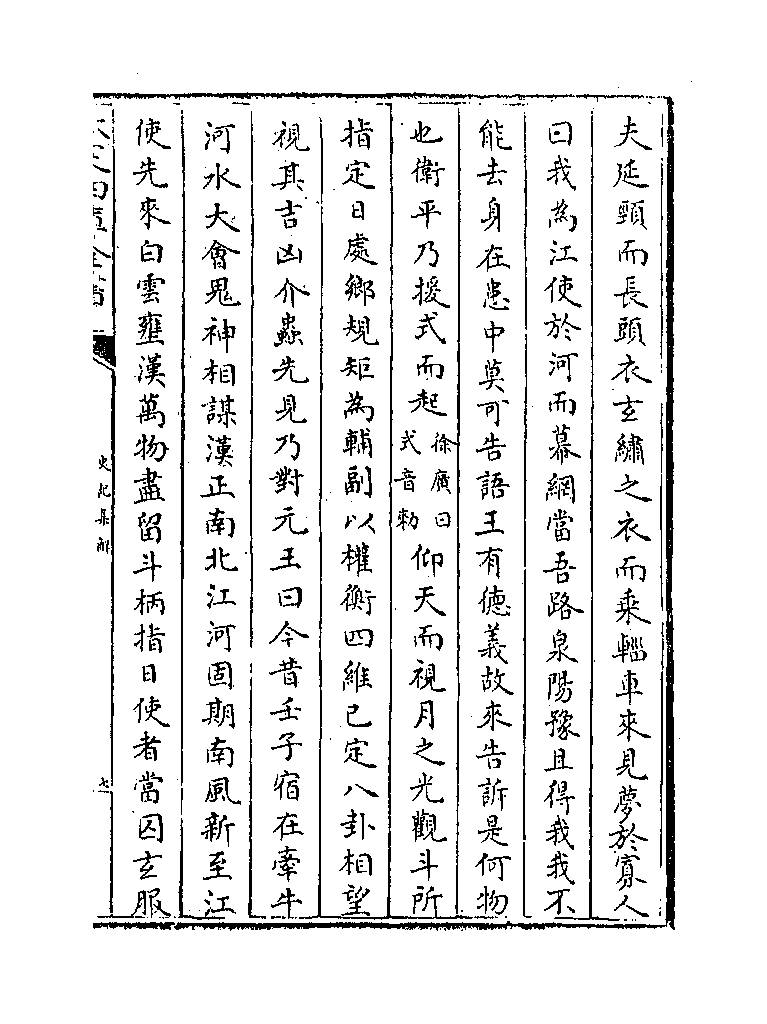 夫延頸而長頭衣玄繡之衣而乘輜車來見夢於寡人
曰我為江使於河而幕網當吾路泉陽豫且得我我不
能去身在患中莫可告語王有德義故來告訴是何物
也衛平乃援式而起徐廣曰式音勅仰天而視月之光觀斗所
指定日處鄉規矩為輔副以權衡四維已定八卦相望
視其吉凶介蟲先見乃對元王曰今昔壬子宿在牽牛
河水大會鬼神相謀漢正南北江河固期南風新至江
使先來白雲壅漢萬物盡留斗柄指日使者當囚玄服
史記集解
七